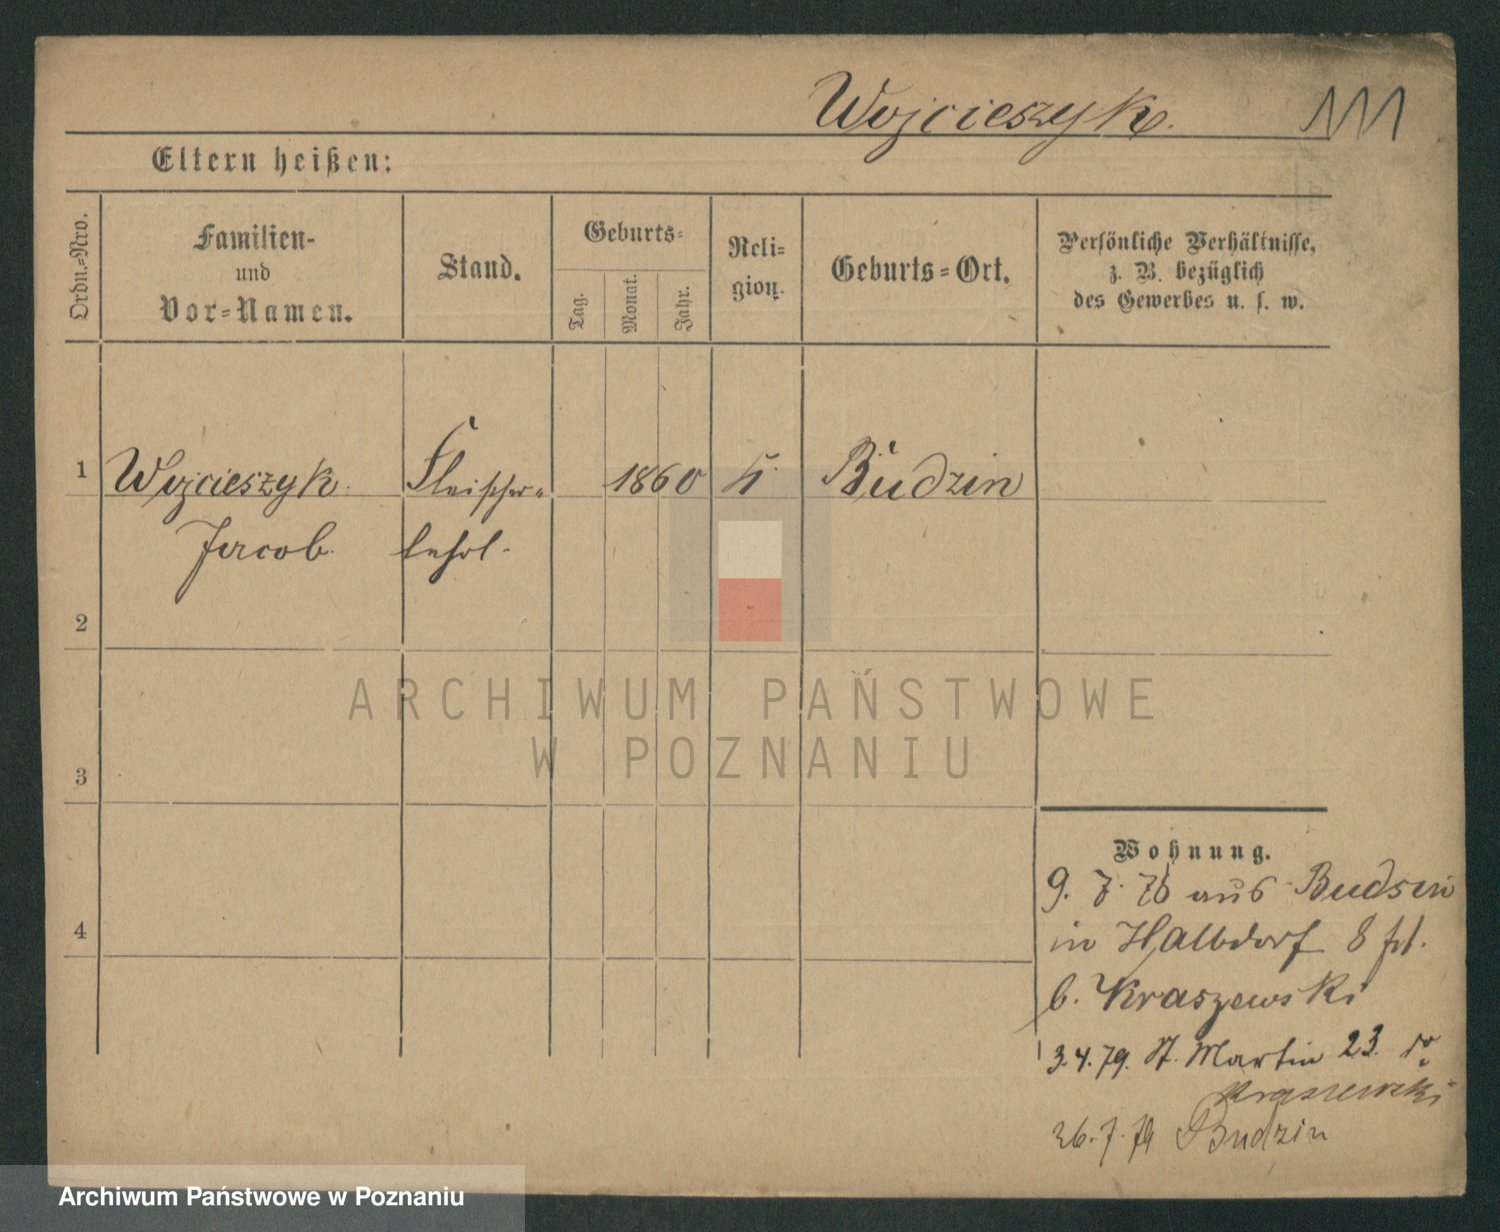 Wojcieszyk.
Eltern heißen:
Ordn.-Nro.
Familien-
und
Vor-Namen.
Stand.
Geburts-
Tag.
Monat.
Jahr.
Reli-
gion.
Geburts-Ort.
Persönliche Verhältnisse,
z. B. bezüglich
des Gewerbes u. s. w.
1 Wojcieszyk Fleischer- 1860 k. Budzin
Jacob lehrl.
2
ARCHIWUM PAŃSTWOWE
W POZNANIU
3
4
Wohnung.
9. 7. 78 aus Budsin
in Halbdorf 8
b. Kraszewski
3.4.79. St. Martin 23.
Kraszewski
26.7.79 Budzin
Archiwum Państwowe w Poznaniu